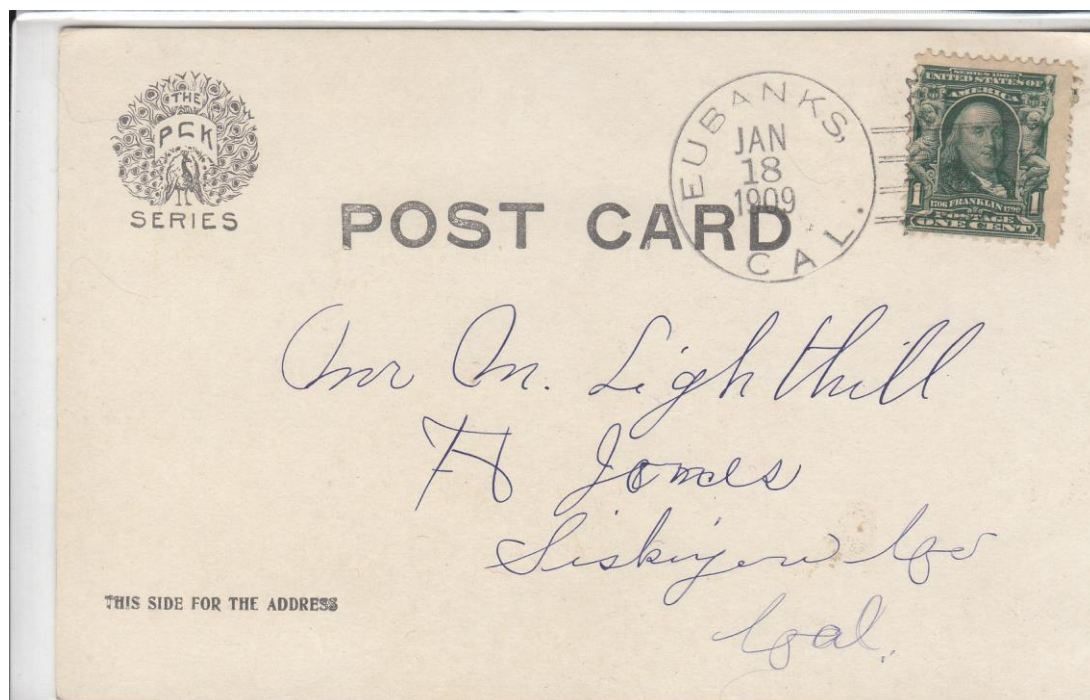 THE
PCK
SERIES
POST CARD
EUBANKS,
JAN
18
1909
CAL.
SERIES 1902
UNITED STATES OF
AMERICA
1 1706 FRANKLIN 1790 1
POSTAGE
ONE CENT
Mr M. Lighthill
Ft Jones
Siskiyou Co
Cal.
THIS SIDE FOR THE ADDRESS